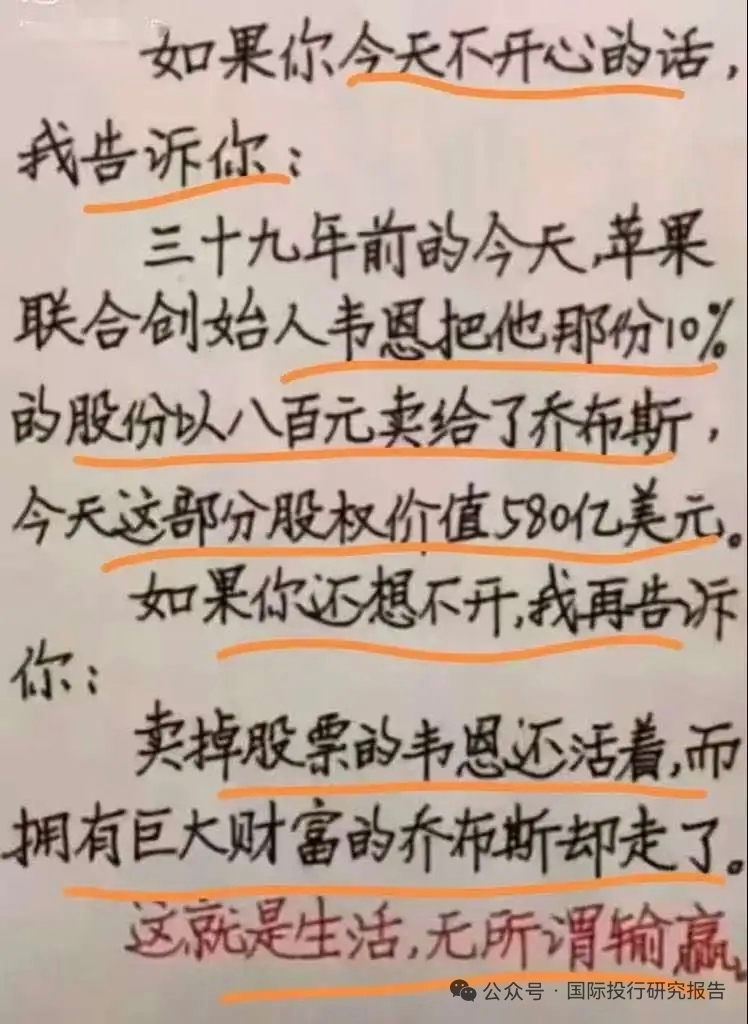 如果你今天不开心的话，
我告诉你：
三十九年前的今天，苹果
联合创始人韦恩把他那份10%
的股份以八百元卖给了乔布斯，
今天这部分股权价值580亿美元。
如果你还想不开，我再告诉
你：
卖掉股票的韦恩还活着，而
拥有巨大财富的乔布斯却走了。
这就是生活，无所谓输赢。
公众号·国际投行研究报告